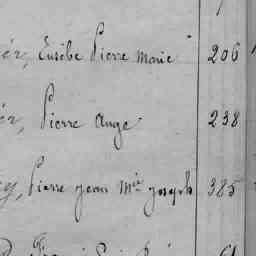 ér, Eusèbe Pierre Marie 206
ér, Pierre Ange 238
Pierre Jean Mie Joseph 385